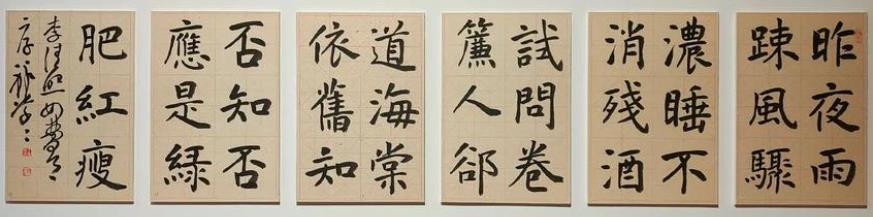 昨夜雨
踈風驟
濃睡不
消殘酒
試問卷
簾人郤
道海棠
依舊知
否知否
應是緑
肥紅瘦
李清照如夢令